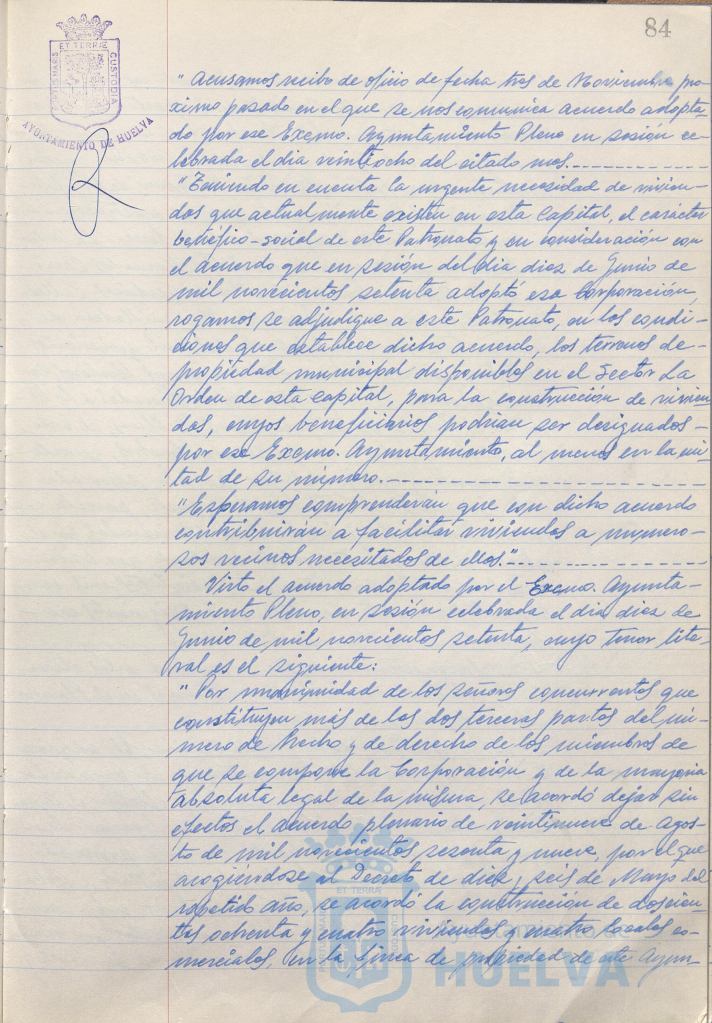 84
PORTUS MARIS
ET TERRÆ
CUSTODIA
AYUNTAMIENTO DE HUELVA
"Acusamos recibo de oficio de fecha tres de Noviembre pró-
ximo pasado en el que se nos comunica acuerdo adopta-
do por ese Excmo. Ayuntamiento Pleno en sesión ce-
lebrada el día veintiocho del citado mes.
"Teniendo en cuenta la urgente necesidad de vivien-
das que actualmente existen en esta Capital, el carácter
benéfico-social de este Patronato y en consideración con
el acuerdo que en sesión del día diez de Junio de
mil novecientos setenta adoptó esa Corporación,
rogamos se adjudique a este Patronato, en las condi-
ciones que establece dicho acuerdo, los terrenos de-
propiedad municipal disponibles en el Sector La
Orden de esta Capital, para la construcción de vivien-
das, cuyos beneficiarios podrían ser designados-
por ese Excmo. Ayuntamiento, al menos en la mi-
tad de su número.
"Esperamos comprenderán que con dicho acuerdo
contribuirán a facilitar viviendas a numero-
sos vecinos necesitados de ellas."
Visto el acuerdo adoptado por el Excmo. Ayunta-
miento Pleno, en sesión celebrada el día diez de
Junio de mil novecientos setenta, cuyo tenor lite-
ral es el siguiente:
"Por unanimidad de los señores concurrentes que
constituyen más de las dos terceras partes del nú-
mero de hecho y de derecho de los miembros de
que se compone la Corporación y de la mayoria
absoluta legal de la misma, se acordó dejar sin
efectos el acuerdo plenario de veintinueve de Agos-
to de mil novecientos sesenta y nueve, por el que
acogiéndose al Decreto de dieci seis de Mayo del
repetido año, se acordó la construcción de doscien-
tas ochenta y cuatro viviendas y cuatro locales co-
merciales, en la finca de propiedad de este Ayun-
HUELVA